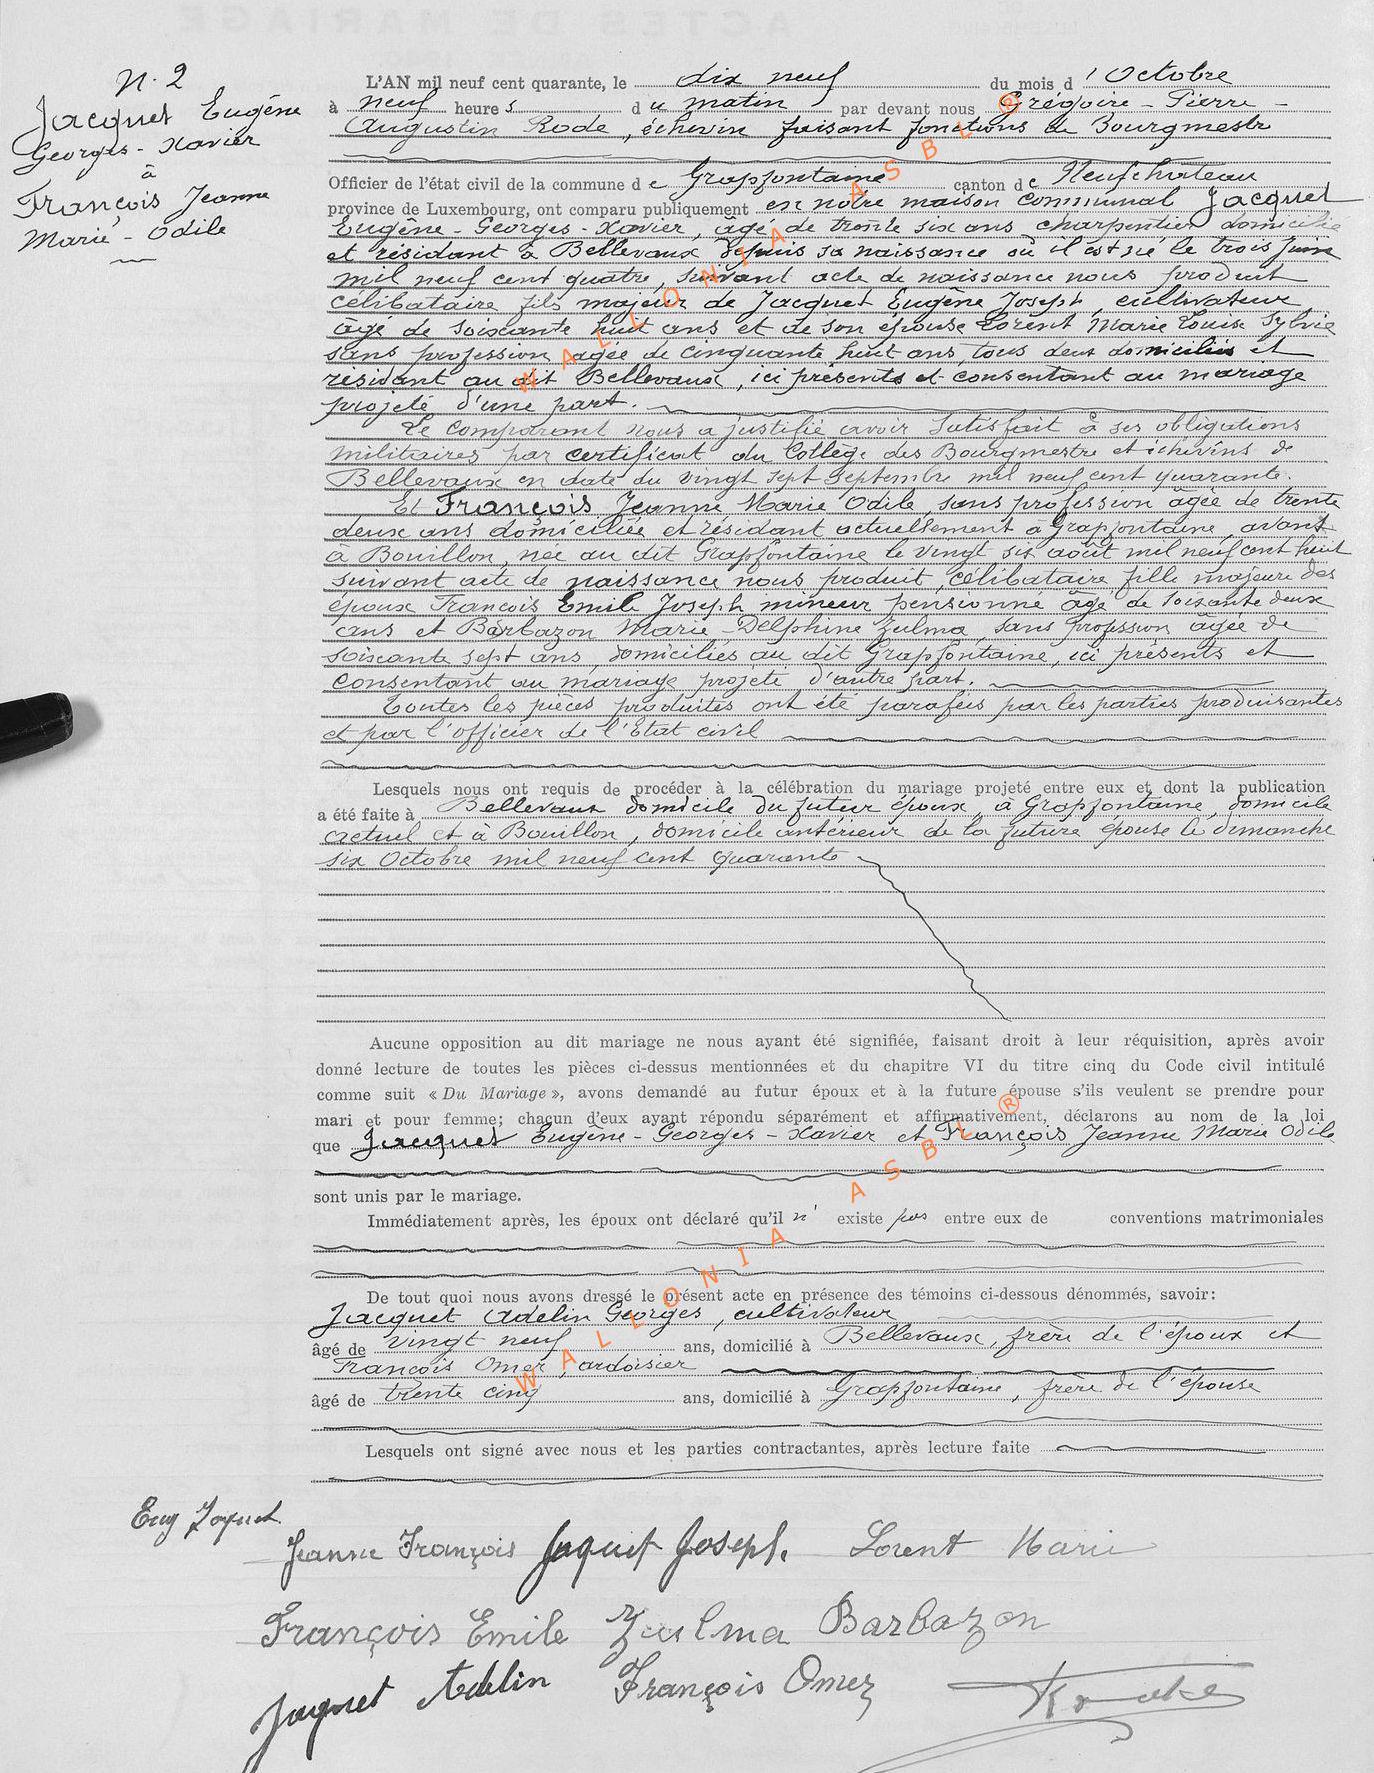 N. 2
Jacquet Eugêne
Georges-Xavier
à
François Jeanne
Marie-Odile
L'AN mil neuf cent quarante, le dix neuf du mois d'Octobre
à neuf heures du matin par devant nous Grégoire-Pierre-
Augustin Rode, échevin faisant fonctions de Bourgmestre
Officier de l'état civil de la commune de Grapfontaine canton de Neufchateau
province de Luxembourg, ont comparu publiquement en notre maison communal Jacquet
Eugêne-Georges-Xavier, âgé de trente six ans charpentier domicilié
et résidant à Bellevaux depuis sa naissance où il est né le trois juin
mil neuf cent quatre, suivant acte de naissance nous produit
célibataire fils majeur de Jacquet Eugêne Joseph, cultivateur
âgé de soixante huit ans et de son épouse Lorent Marie Louise Sylvie
sans profession agée de cinquante huit ans, tous deux domiciliés et
résidant au dit Bellevaux, ici présents et consentant au mariage
projeté d'une part.
Le comparant nous a justifié avoir satisfait à ses obligations
militaires par certificat du Collège des Bourgmestre et échevins de
Bellevaux en date du vingt sept septembre mil neuf cent quarante.
Et François Jeanne Marie Odile, sans profession âgée de trente
deux ans domiciliée et résidant actuellement à Grapfontaine, avant
à Bouillon, née au dit Grapfontaine le vingt six août mil neuf cent huit
suivant acte de naissance nous produit, célibataire fille majeure des
époux François Emile Joseph mineur pensionné âgé de soixante deux
ans et Barbazon Marie-Delphine Zulma, sans profession agée de
soixante sept ans, domiciliés au dit Grapfontaine, ici présents et
consentant au mariage projeté d'autre part.
Toutes les pièces produites ont été paraféés par les parties produisantes
et par l'officier de l'Etat civil
Lesquels nous ont requis de procéder à la célébration du mariage projeté entre eux et dont la publication
a été faite à Bellevaux domicile du futur époux, à Grapfontaine, domicile
actuel et à Bouillon, domicile antérieur de la future épouse le dimanche
six Octobre mil neuf cent quarante
Aucune opposition au dit mariage ne nous ayant été signifiée, faisant droit à leur réquisition, après avoir
donné lecture de toutes les pièces ci-dessus mentionnées et du chapitre VI du titre cinq du Code civil intitulé
comme suit « Du Mariage », avons demandé au futur époux et à la future épouse s'ils veulent se prendre pour
mari et pour femme; chacun d'eux ayant répondu séparément et affirmativement, déclarons au nom de la loi
que Jacquet Eugêne-Georges-Xavier et François Jeanne Marie Odile
sont unis par le mariage.
Immédiatement après, les époux ont déclaré qu'il n'existe pas entre eux de conventions matrimoniales
De tout quoi nous avons dressé le présent acte en présence des témoins ci-dessous dénommés, savoir:
Jacquet Adelin Georges, cultivateur
âgé de vingt neuf ans, domicilié à Bellevaux, frère de l'époux et
François Omer, ardoisier
âgé de trente cinq ans, domicilié à Grapfontaine, frère de l'épouse
Lesquels ont signé avec nous et les parties contractantes, après lecture faite
Eug Jaquet
Jeanne François Jaquet Joseph. Lorent Marie
François Emile Zulma Barbazon
Jaquet Adelin François Omer
WALLONIA ASBL ®
WALLONIA ASBL ®